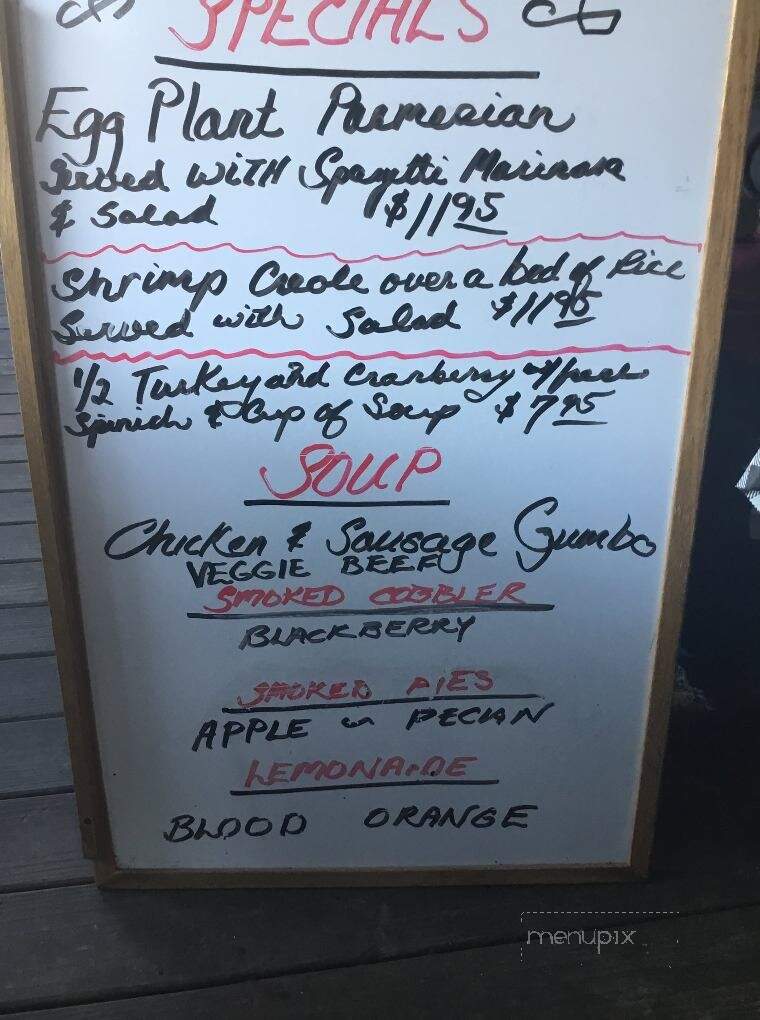 SPECIALS
Egg Plant Parmesian
Served WITH Spagetti Marinara
& Salad $11 95
Shrimp Creole over a bed of Rice
Served with Salad $11 95
1/2 Turkey and Cranberry w/
Spinich & Cup of Soup $7 95
SOUP
Chicken & Sausage Gumbo
VEGGIE BEEF
SMOKED COBBLER
BLACKBERRY
SMOKED PIES
APPLE or PECAN
LEMONAIDE
BLOOD ORANGE
menupix